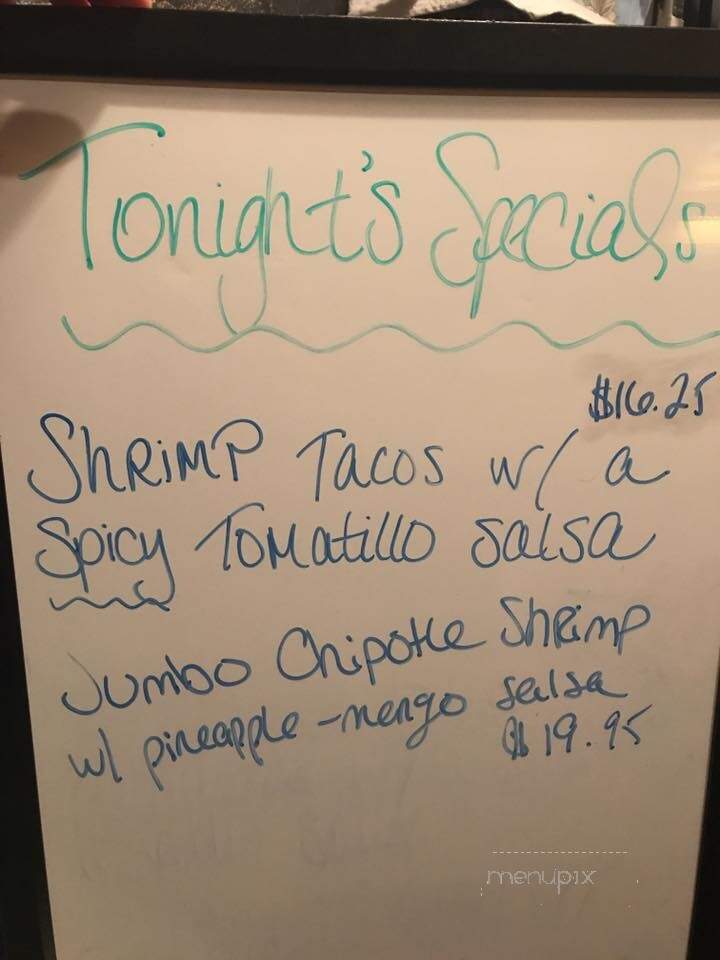 Tonight's Specials
$16.25
Shrimp Tacos w/ a
Spicy Tomatillo Salsa
Jumbo Chipotle Shrimp
w/ pineapple-mango salsa
$19.95
menupix